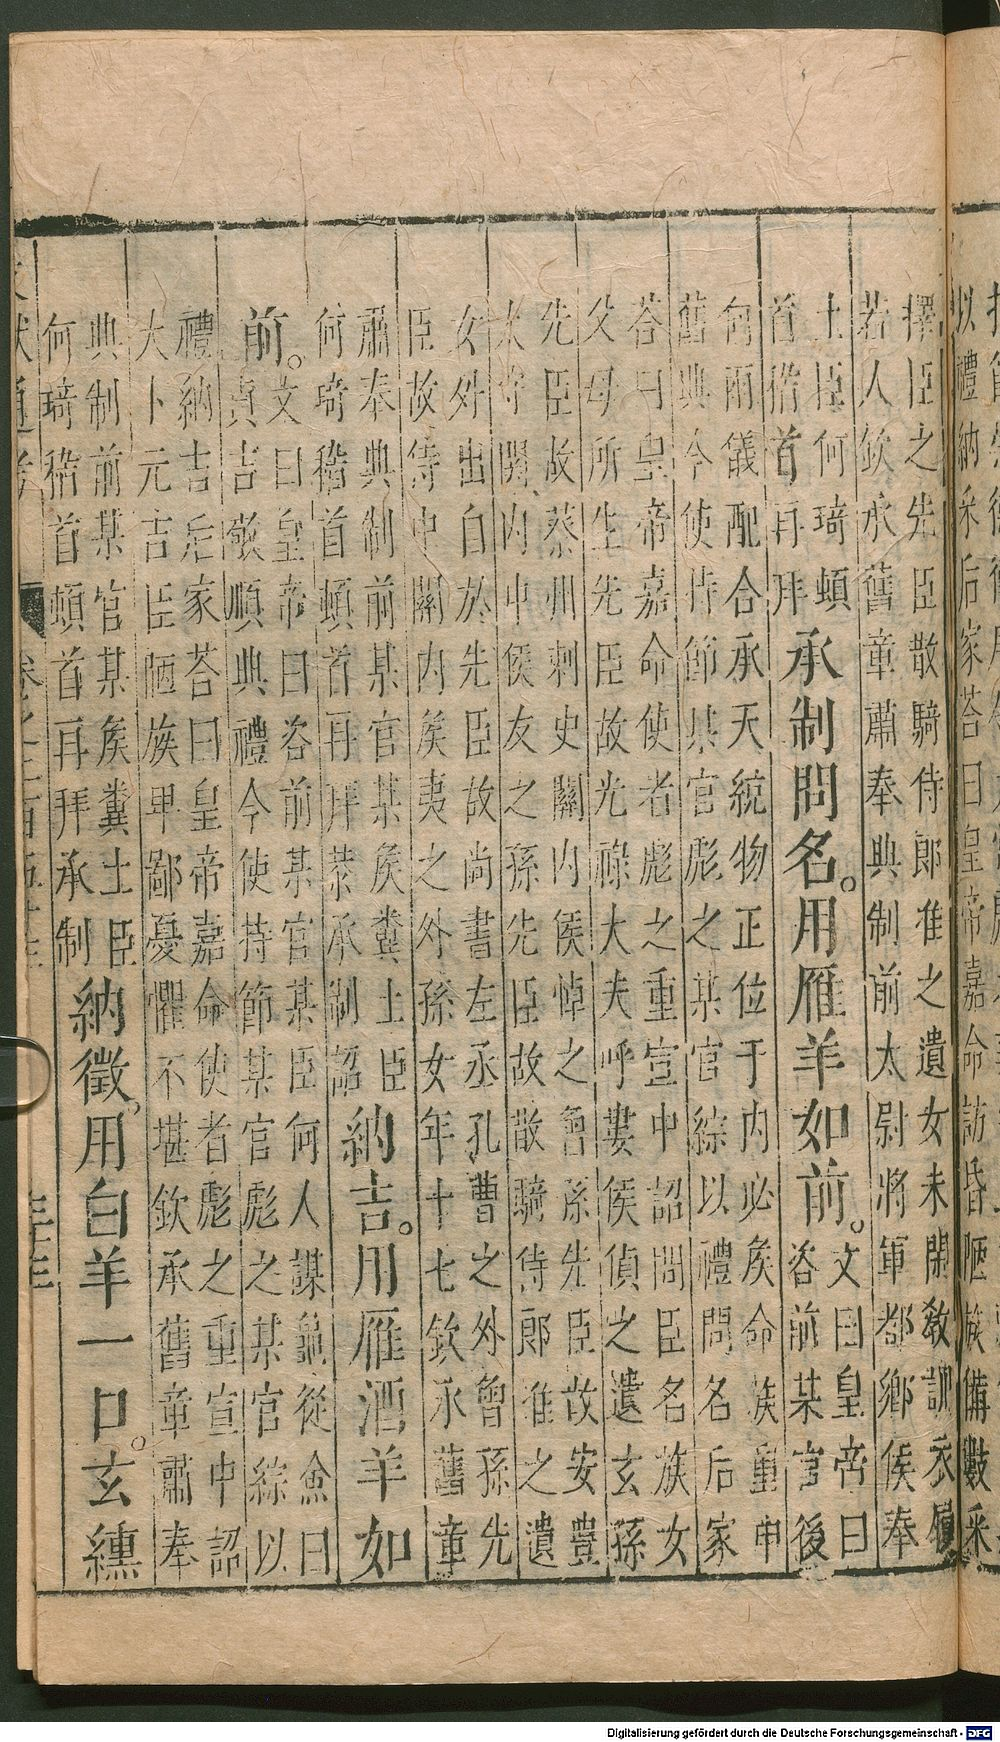 以禮納采后家荅曰皇帝嘉命訪昏陋族備數采
擇臣之先臣散騎侍郎准之遺女未閑教訓衣履
若人欽承舊章肅奉典制前太尉將軍都鄉侯奉
土臣何琦頓
首稽首再拜
承制問名。用雁羊如前。
文曰皇帝曰
咨前某官後
何兩儀配合承天統物正位于内必俟命族重申
舊典今使持節某官彪之某官綜以禮問名后家
荅曰皇帝嘉命使者彪之重宣中詔問臣名族女
父母所生先臣故光祿大夫呼婁侯偵之遺玄孫
先臣故蔡州刺史關内侯悼之曾孫先臣故安豊
太守關内中侯友之孫先臣故散騎侍郎准之遺
女外出自於先臣故尚書左丞孔曹之外曾孫先
臣故侍中關内侯夷之外孫女年十七欽承舊章
肅奉典制前某官某侯糞土臣
何琦稽首頓首再拜恭承制詔
納吉。用雁酒羊如
前。
文曰皇帝曰咨前某官某臣何人謀龜從僉曰
貞吉敬順典禮今使持節某官彪之某官綜以
禮納吉后家荅曰皇帝嘉命使者彪之重宣中詔
大卜元吉臣陋族卑鄙憂懼不堪欽承舊章肅奉
典制前某官某侯糞土臣
何琦稽首頓首再拜承制
納徵。用白羊一口。玄纁
Digitalisierung gefördert durch die Deutsche Forschungsgemeinschaft - DFG